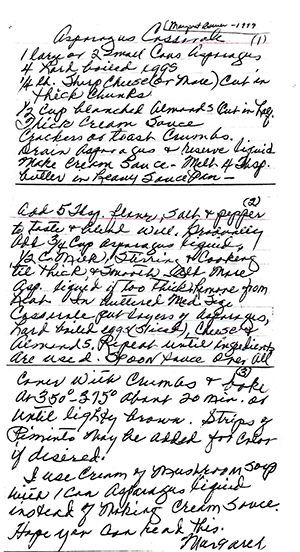 Asparagus Casserole
(1)
1 large or 2 small Cans Asparagus
4 hard boiled eggs
1/4 lb. Sharp Cheese (or More) Cut in
thick Chunks
1/2 Cup blanched Almonds Cut in half
Thick Cream Sauce
Crackers or toast Crumbs.
Drain Asparagus & reserve liquid
Make Cream Sauce - Melt 4 tbsp.
butter in heavy Sauce Pan -
(2)
Add 5 tbsp flour, Salt & pepper
to taste & blend well. Gradually
Add 3/4 Cup asparagus liquid,
1/2 C. Milk, Stirring & Cooking
till thick & smooth. Add More
Asp. liquid if too thick. Remove from
heat. In buttered Med. Size
Casserole put layers of Asparagus,
hard boiled eggs (sliced), Cheese &
Almonds. Repeat until ingredients
are used. Spoon Sauce over All
(3)
Cover With Crumbs & bake
At 350°-375° About 20 Min. or
Until lightly brown. Strips of
Pimiento May be added for Color
if desired.
I use Cream of Mushroom Soup
with 1 Can Asparagus liquid
instead of Making Cream Sauce.
Hope you can read this.
Margaret